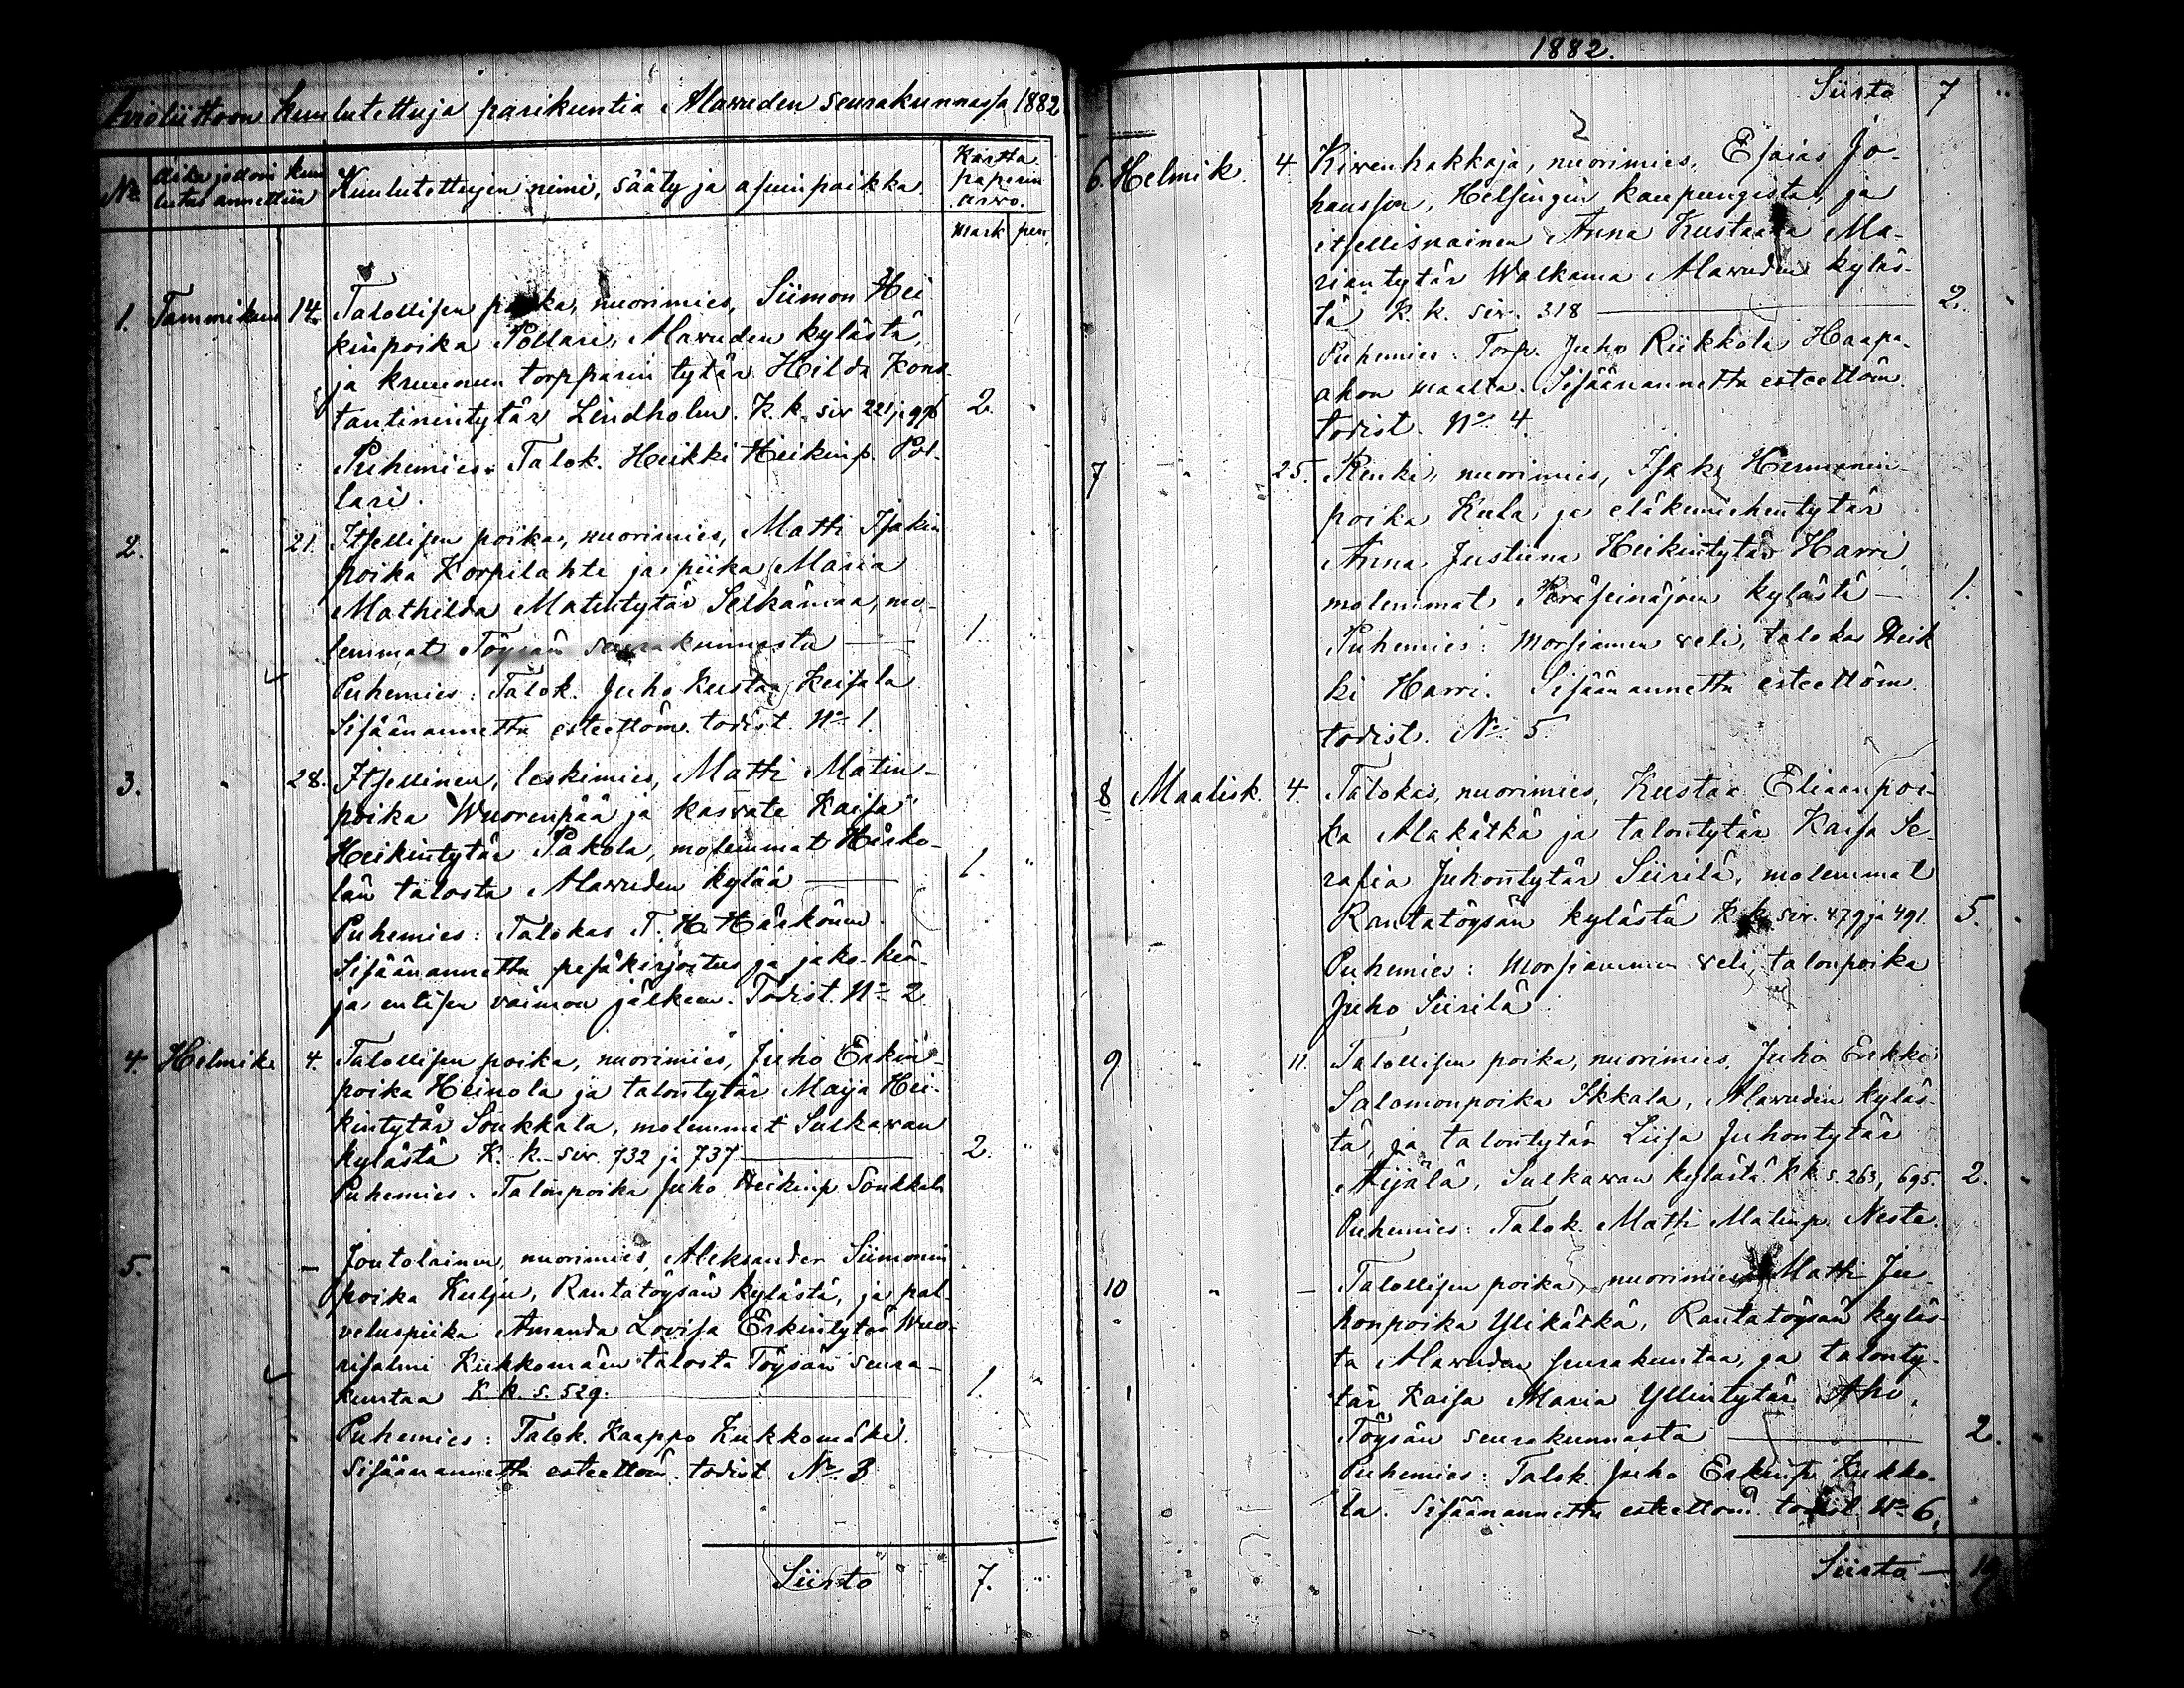 Avioliittoon kuulutettuja parikuntia Alavuden seurakunnassa 1882
No
Aika jolloin kuulutus annettiin
Kuulutettujen nimi, sääty ja asuinpaikka
Kartta paperin arvo.
Mark pen.
1. Tammikuu 14. Talollisen poika, nuorimies, Siimon Hei
kinpoika Pollari, Alavuden kylästä,
ja kruunun torpparin tytär Hilda Kons-
tantinintytär Lindholm. K.k. siv 221 ja 996 2.
Puhemies: Talok. Heikki Heikinp. Pol-
lari.
2. " 21. Itsellisen poika, nuorimies, Matti Isakin
poika Korpilahti ja piika Maria
Mathilda Matintytär Selkämaa, mo-
lemmat Töysän seurakunnasta — 1. "
Puhemies: Talok. Juho Kustaa Keisala
Sisäänannettu esteettöm. todist. No 1.
3. " 28. Itsellinen, leskimies, Matti Matin-
poika Wuorenpää ja kasvate Kaisa
Heikintytär Pakola, molemmat Härkö-
län talosta Alavuden kylää — 1. "
Puhemies: Talokas T. H. Härkönen.
Sisäänannettu pesäkirjoitus ja jako-kir-
ja entisen vaimon jälkeen. Todist. No 2
4. Helmik. 4. Talollisen poika, nuorimies, Juho Erkin-
poika Heinola ja talontytär Maija Hei-
kintytär Soukkala, molemmat Sulkavan
kylästä K. k. siv. 732 ja 737 — 2. "
Puhemies: Talonpoika Juho Heikinp Soukkala
5. " — Joutolainen, nuorimies, Aleksander Siimonin
poika Kulju, Rantatöysän kylästä, ja pal-
veluspiika Amanda Lovisa Erkintytär Wuo-
risalmi Kukkomäen talosta Töysän seura-
kuntaa K. k. s. 529. — 1. "
Puhemies: Talok. Kaappo Kukkomäki.
Sisäänannettu esteettöm. todist No 3
Siirto 7. "
1882.
Siirto 7 "
6. Helmik. 4. Kivenhakkaja, nuorimies, Esaias Jo-
hansson, Helsingin kaupungista, ja
itsellisnainen Anna Kustaava Ma-
riantytär Walkama Alavuden kyläs-
tä K. k. siv. 318 — 2.
Puhemies: Torp. Juho Riikkola Haapa-
ahon maalta. Sisäänannettu esteettöm.
todist. No 4.
7 " 25. Renki, nuorimies, Isak Hermanin
poika Kula, ja eläkemiehentytär
Anna Justiina Heikintytär Harri,
molemmat Peräseinäjoen kylästä — 1.
Puhemies: Morsiamen veli, talokas Heik
ki Harri. Sisäänannettu esteettöm.
todist. No 5
8 Maalisk. 4. Talokas, nuorimies, Kustaa Eliaanpoi-
ka Alakätkä ja talontytär Kaisa Se-
rafia Juhontytär Siirilä, molemmat
Rantatöysän kylästä K.k. siv. 479 ja 491 5.
Puhemies: Morsiammen veli, talonpoika
Juho Siirilä
9 " 11. Talollisen poika, nuorimies, Juho Erkki
Salomonpoika Ikkala, Alavuden kyläs-
tä, ja talontytär Liisa Juhontytär
Äijälä, Sulkavan kylästä. K.k. s. 263, 695. 2.
Puhemies: Talok. Matti Matinp. Nesta.
10 " — Talollisen poika, nuorimies, Matti Ju-
honpoika Ylikätkä, Rantatöysän kyläs-
tä Alavuden seurakuntaa, ja talonty-
tär Kaisa Maria Yllintytär Aho,
Töysän seurakunnasta — 2.
Puhemies: Talok. Juho Erkinp. Kukko-
la. Sisäänannettu esteettöm. todist. No 6.
Siirto — 19